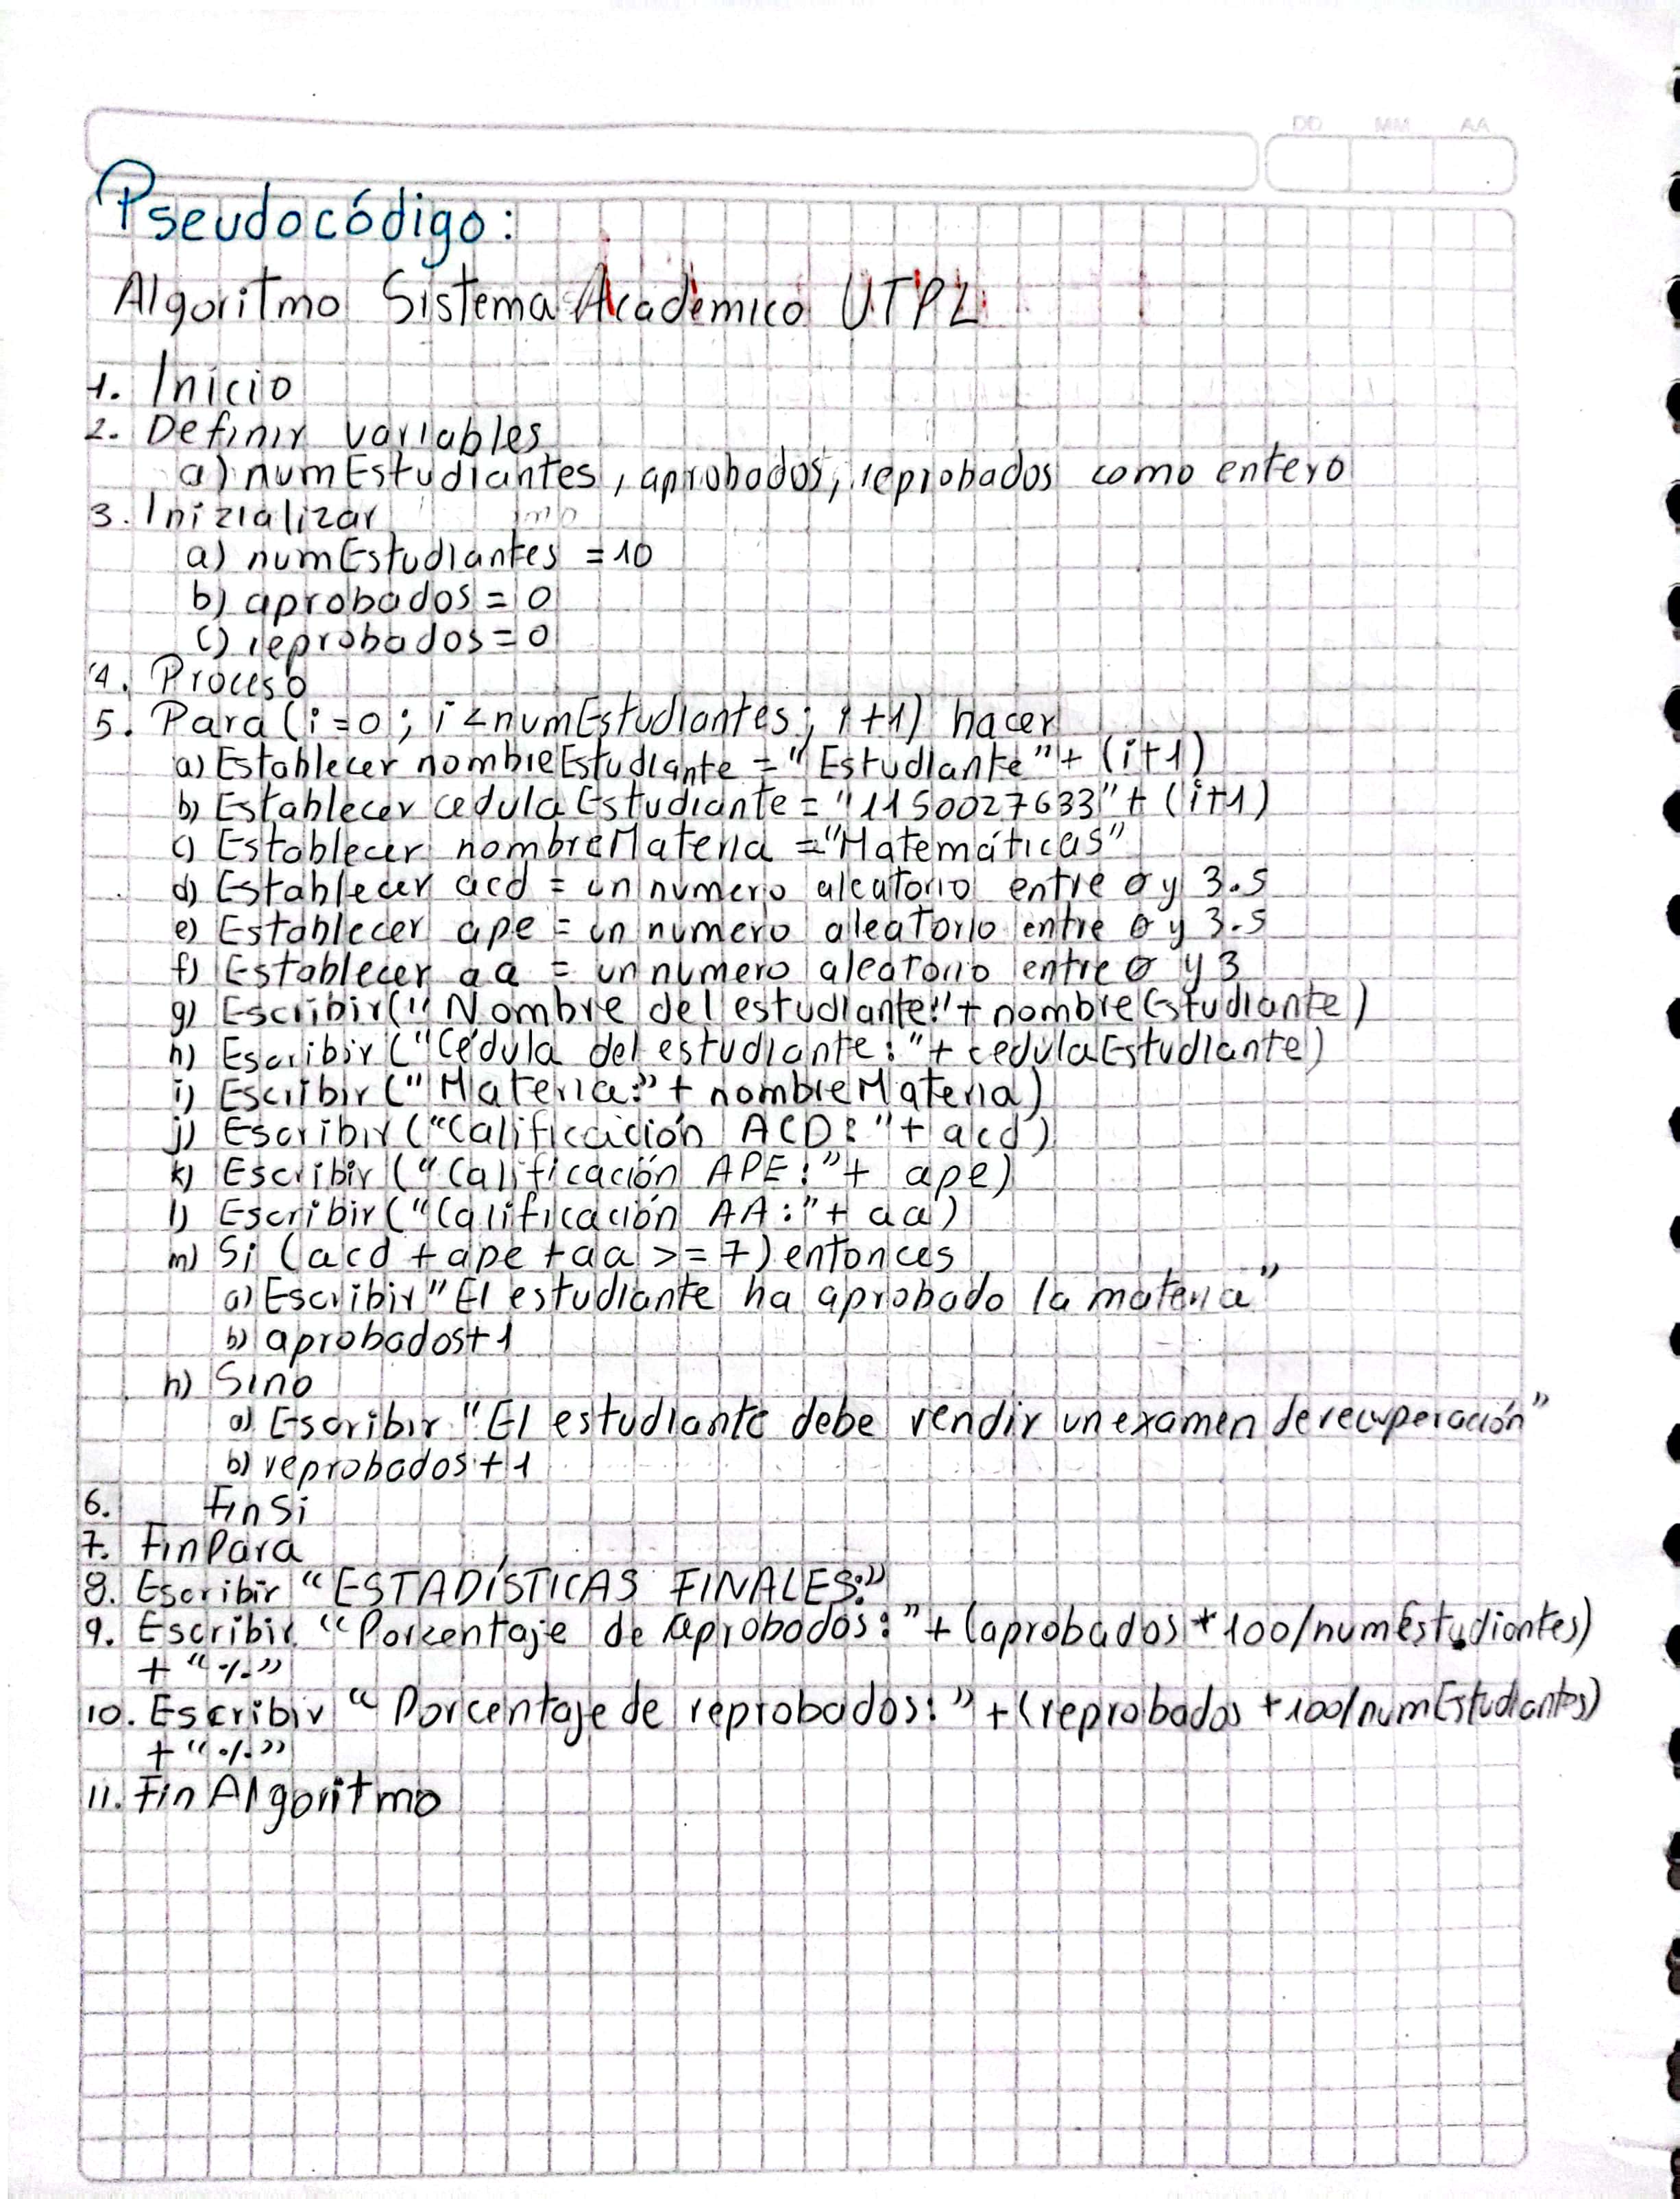 DD MM AA
Pseudocódigo:
Algoritmo Sistema Academico UTPL
1. Inicio
2. Definir variables
a) numEstudiantes, aprobados, reprobados como entero
3. Inizializar
a) numEstudiantes = 10
b) aprobados = 0
c) reprobados = 0
4. Proceso
5. Para (i=0; i<numEstudiantes; i+1) hacer
a) Establecer nombreEstudiante = "Estudiante" + (i+1)
b) Establecer cedulaEstudiante = "1150027633" + (i+1)
c) Establecer nombreMateria = "Matemáticas"
d) Establecer acd = un numero aleatorio entre 0 y 3.5
e) Establecer ape = un numero aleatorio entre 0 y 3.5
f) Establecer aa = un numero aleatorio entre 0 y 3
g) Escribir("Nombre del estudiante:" + nombreEstudiante)
h) Escribir ("Cédula del estudiante:" + cedulaEstudiante)
i) Escribir ("Materia:" + nombreMateria)
j) Escribir ("Calificación ACD:" + acd)
k) Escribir ("Calificación APE:" + ape)
l) Escribir ("Calificación AA:" + aa)
m) Si (acd + ape + aa >= 7) entonces
a) Escribir "El estudiante ha aprobado la materia"
b) aprobados+1
n) Sino
a) Escribir "El estudiante debe rendir un examen de recuperación"
b) reprobados+1
6. FinSi
7. FinPara
8. Escribir "ESTADÍSTICAS FINALES:"
9. Escribir "Porcentaje de aprobados:" + (aprobados * 100/numEstudiantes)
+ "%"
10. Escribir "Porcentaje de reprobados:" + (reprobados *100/numEstudiantes)
+ "%"
11. Fin Algoritmo